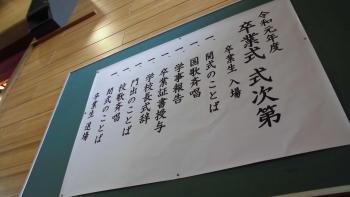 令和元年度
卒業式 式次第
卒業生 入場
一、開式のことば
一、国歌斉唱
一、学事報告
一、卒業証書授与
一、学校長式辞
一、門出のことば
一、校歌斉唱
一、閉式のことば
卒業生 退場